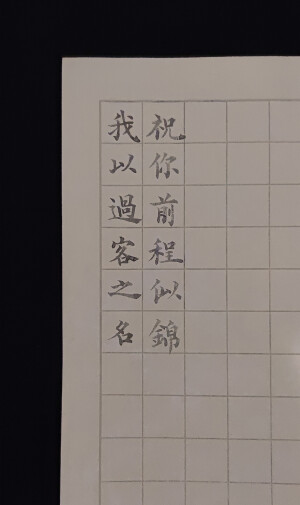 我以過客之名
祝你前程似錦